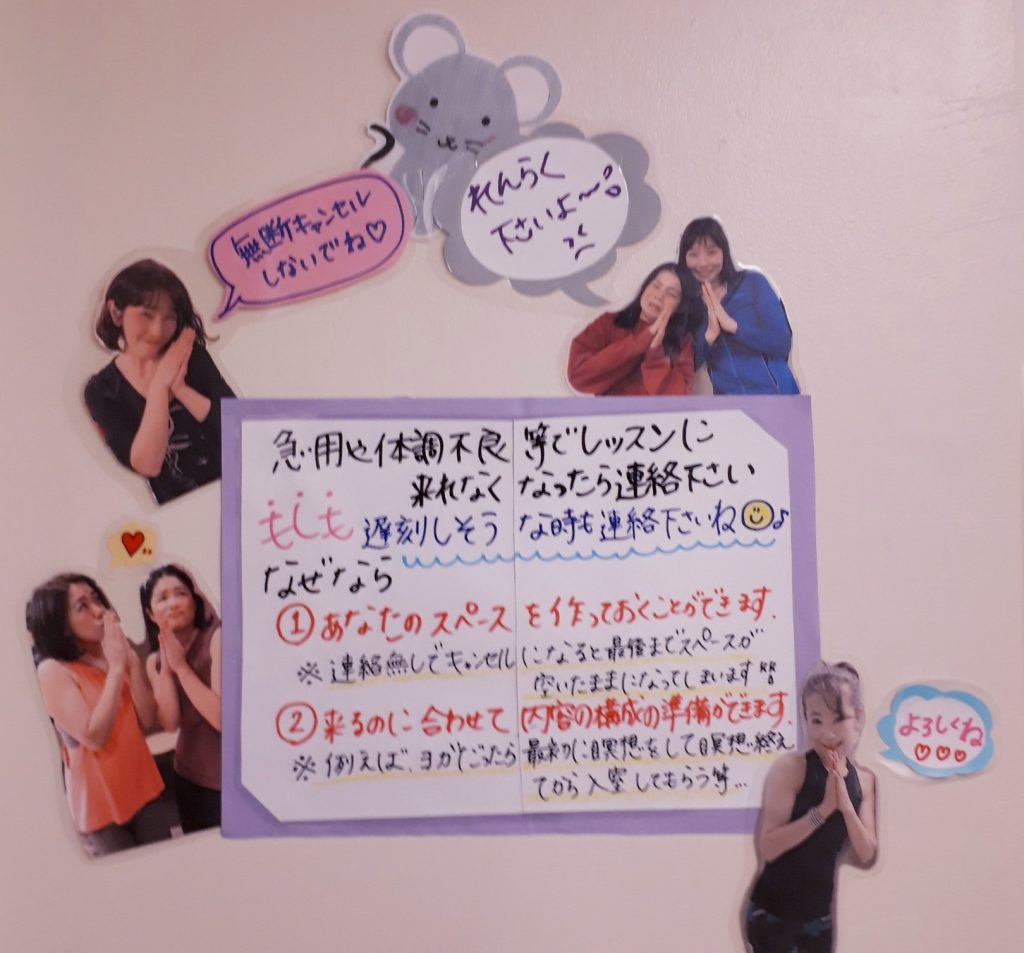 れんらく
下さいよ〜
無断キャンセル
しないでね♡
急用や体調不良等でレッスンに
来れなくなったら連絡下さい
もしも遅刻しそうな時も連絡下さいね♪
なぜなら
①あなたのスペースを作っておくことができます.
※連絡無しでキャンセルになると最後までスペースが
空いたままになってしまいます
②来るのに合わせて内容の構成の準備ができます.
※例えば、ヨガだったら最初に瞑想をして瞑想終え
てから入室してもらう等…
よろしくね
♡♡♡